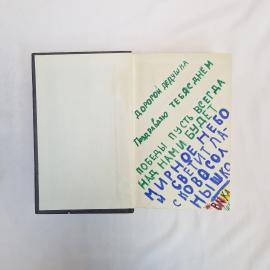 ДОРОГОЙ ДЕДУШКА
Поздравляю ТЕБЯ С ДНЁМ
ПОБЕДЫ ПУСТЬ ВСЕГДА
НАД НАМИ БУДЕТ
МИРНОЕ НЕБО
И СВЕТИТ ЛА-
СКОВО СОЛ
НЫШКО